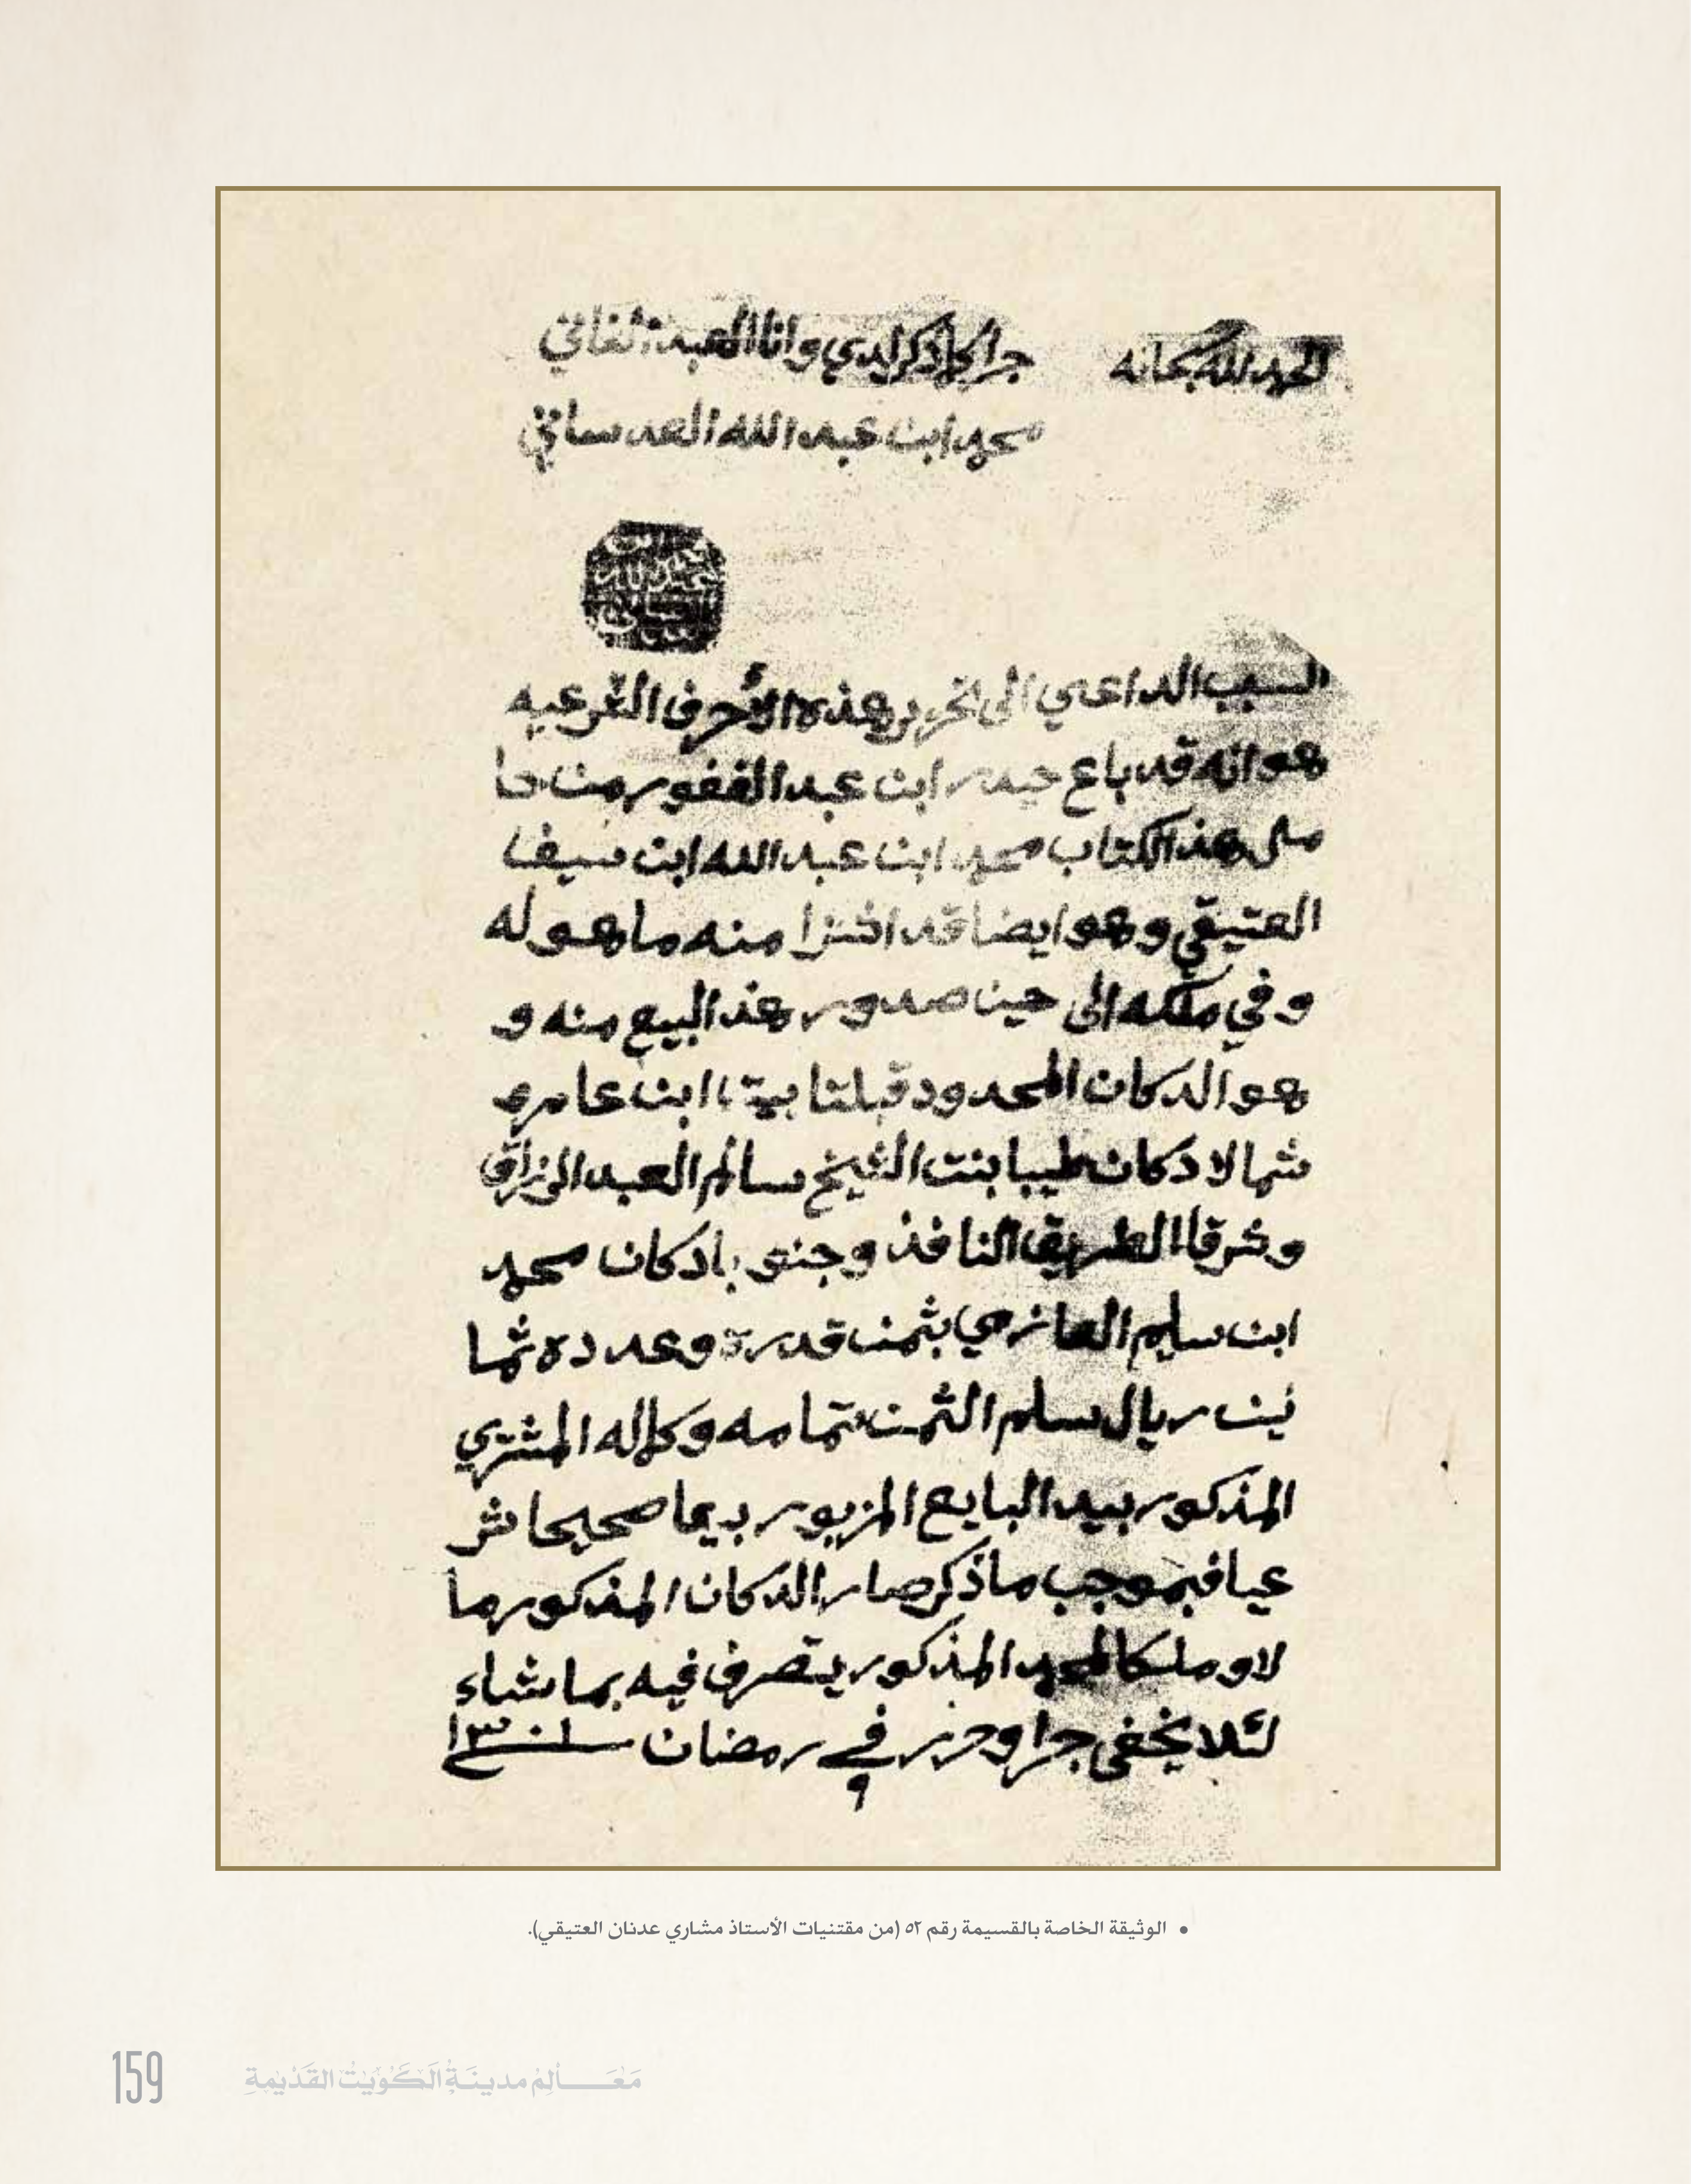 الحمد لله سبحانه
جرا كما ذكر لدي وانا العبد الفاني
محمد ابن عبد الله العدساني
السبب الداعي الى تحرير هذه الأحرف الشرعيه
هو انه قد باع حيدر ابن عبد الغفور من حا
مل هذا الكتاب محمد ابن عبد الله ابن سيف
العتيقي وهو ايضا قد اشترا منه ما هو له
وفي ملكه الى حين صدور هذ البيع منه و
هو الدكان المحدود قبلتا بيت ابن عامر و
شمالا دكان طيبا بنت الشيخ سالم العبد الرزاق
وشرقا الطريق النافذ وجنوبا دكان محمد
ابن سليم العازمي بثمن قدره وعدده ثما
نين ريال سلم الثمن بتمامه وكماله المشتري
المذكور بيد البايع المزبور بيعا صحيحا شر
عيا فبموجب ما ذكر صار الدكان المذكور ما
لا وملكا لمحمد المذكور يتصرف فيه بما شاء
لئلا يخفى جرا وحرر في ٩ رمضان سنة ١٣٠١
• الوثيقة الخاصة بالقسيمة رقم ٥٢ (من مقتنيات الأستاذ مشاري عدنان العتيقي).
159 مَعَالِم مدينَة الكُوَيْت القَدِيمَة